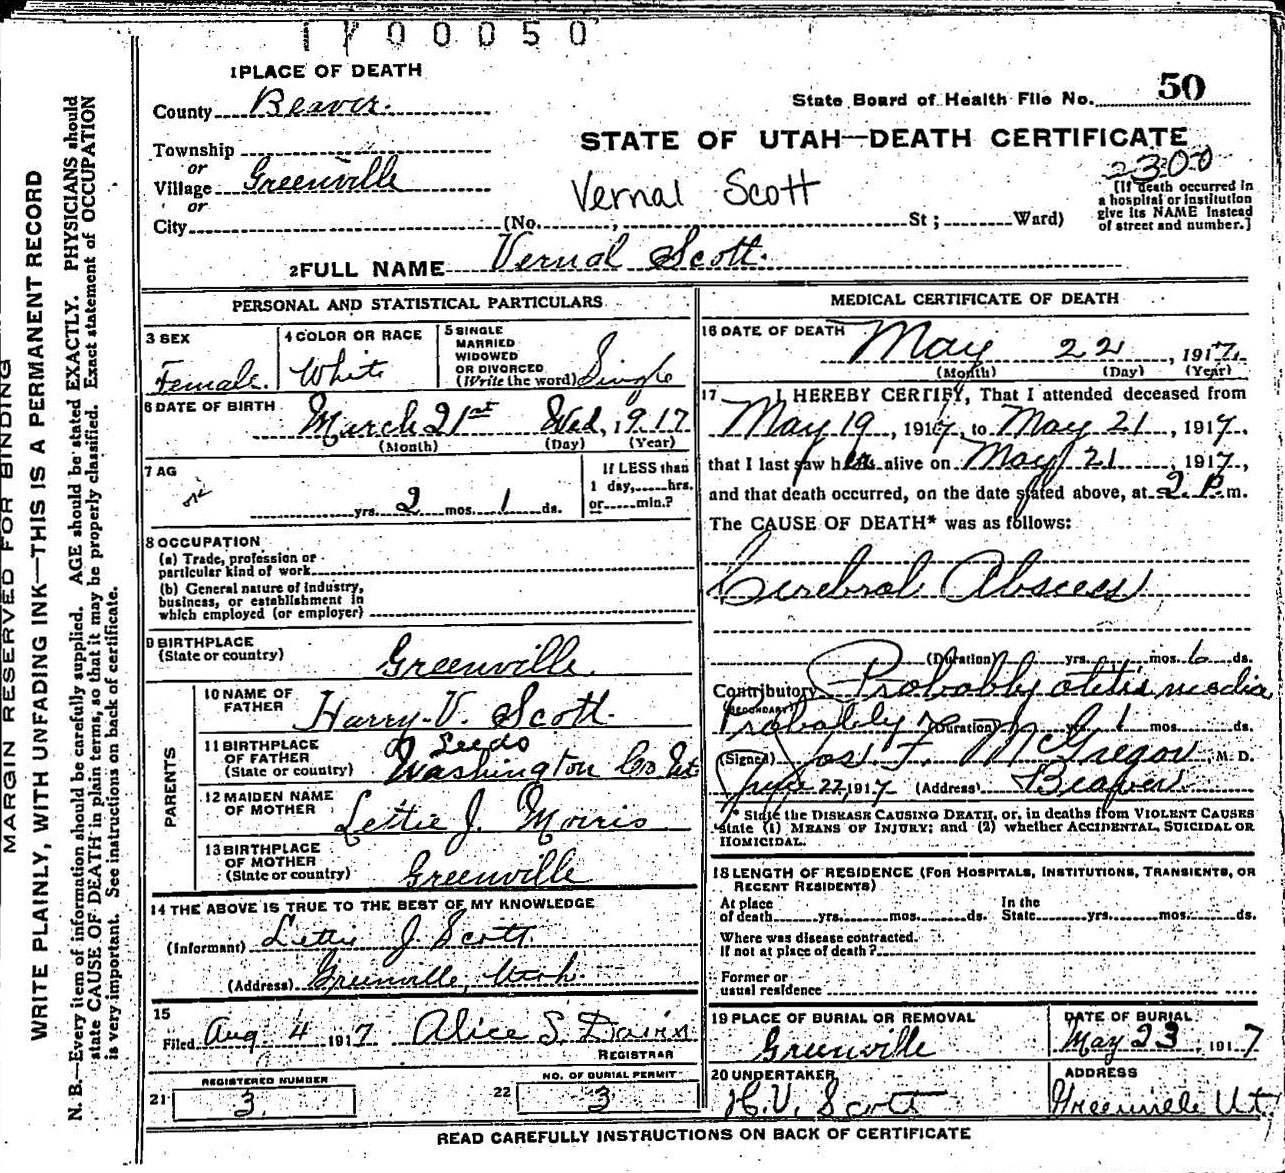 1700050
1 PLACE OF DEATH
County Beaver.
State Board of Health File No. 50
STATE OF UTAH—DEATH CERTIFICATE
Township
or
Village Greenville
or
City
2300
Vernal Scott
(No. , St ; Ward)
[If death occurred in
a hospital or institution
give its NAME instead
of street and number.]
2 FULL NAME Vernal Scott.
PERSONAL AND STATISTICAL PARTICULARS
3 SEX
Female.
4 COLOR OR RACE
White
5 SINGLE
MARRIED
WIDOWED
OR DIVORCED
(Write the word) Single
6 DATE OF BIRTH
March 21st Wed, 1917
(Month) (Day) (Year)
7 AG
yrs. 2 mos. 1 ds.
If LESS than
1 day, hrs.
or min.?
8 OCCUPATION
(a) Trade, profession or
particular kind of work
(b) General nature of industry,
business, or establishment in
which employed (or employer)
9 BIRTHPLACE
(State or country)
Greenville.
PARENTS
10 NAME OF
FATHER
Harry V. Scott.
11 BIRTHPLACE
OF FATHER
(State or country)
Leeds
Washington Co Ut.
12 MAIDEN NAME
OF MOTHER
Lettie J. Morris
13 BIRTHPLACE
OF MOTHER
(State or country)
Greenville
14 THE ABOVE IS TRUE TO THE BEST OF MY KNOWLEDGE
(Informant) Lettie J Scott.
(Address) Greenville, Utah.
15
Filed Aug 4 1917 Alice S. Davis
REGISTRAR
REGISTERED NUMBER
21 3.
NO. OF BURIAL PERMIT
22 3
MEDICAL CERTIFICATE OF DEATH
16 DATE OF DEATH
May 22, 1917.
(Month) (Day) (Year)
17 I HEREBY CERTIFY, That I attended deceased from
May 19, 1917, to May 21, 1917,
that I last saw her alive on May 21, 1917,
and that death occurred, on the date stated above, at 2 P. m.
The CAUSE OF DEATH* was as follows:
Cerebral Abscess
(Duration) yrs. mos. 6 ds.
Contributory Probably otitis media
(SECONDARY)
Probably (Duration) yrs. 1 mos. ds.
(Signed) Jos. F. McGregor, M. D.
June 22, 1917 (Address) Beaver.
* State the DISEASE CAUSING DEATH, or, in deaths from VIOLENT CAUSES
state (1) MEANS OF INJURY; and (2) whether ACCIDENTAL, SUICIDAL OR
HOMICIDAL.
18 LENGTH OF RESIDENCE (FOR HOSPITALS, INSTITUTIONS, TRANSIENTS, OR
RECENT RESIDENTS)
At place
of death yrs. mos. ds.
In the
State yrs. mos. ds.
Where was disease contracted.
If not at place of death?
Former or
usual residence
19 PLACE OF BURIAL OR REMOVAL
Greenville
DATE OF BURIAL
May 23, 1917
20 UNDERTAKER
H. V. Scott
ADDRESS
Greenville Ut.
READ CAREFULLY INSTRUCTIONS ON BACK OF CERTIFICATE
MARGIN RESERVED FOR BINDING
WRITE PLAINLY, WITH UNFADING INK—THIS IS A PERMANENT RECORD
N. B.—Every item of information should be carefully supplied. AGE should be stated EXACTLY. PHYSICIANS should
state CAUSE OF DEATH in plain terms, so that it may be properly classified. Exact statement of OCCUPATION
is very important. See instructions on back of certificate.